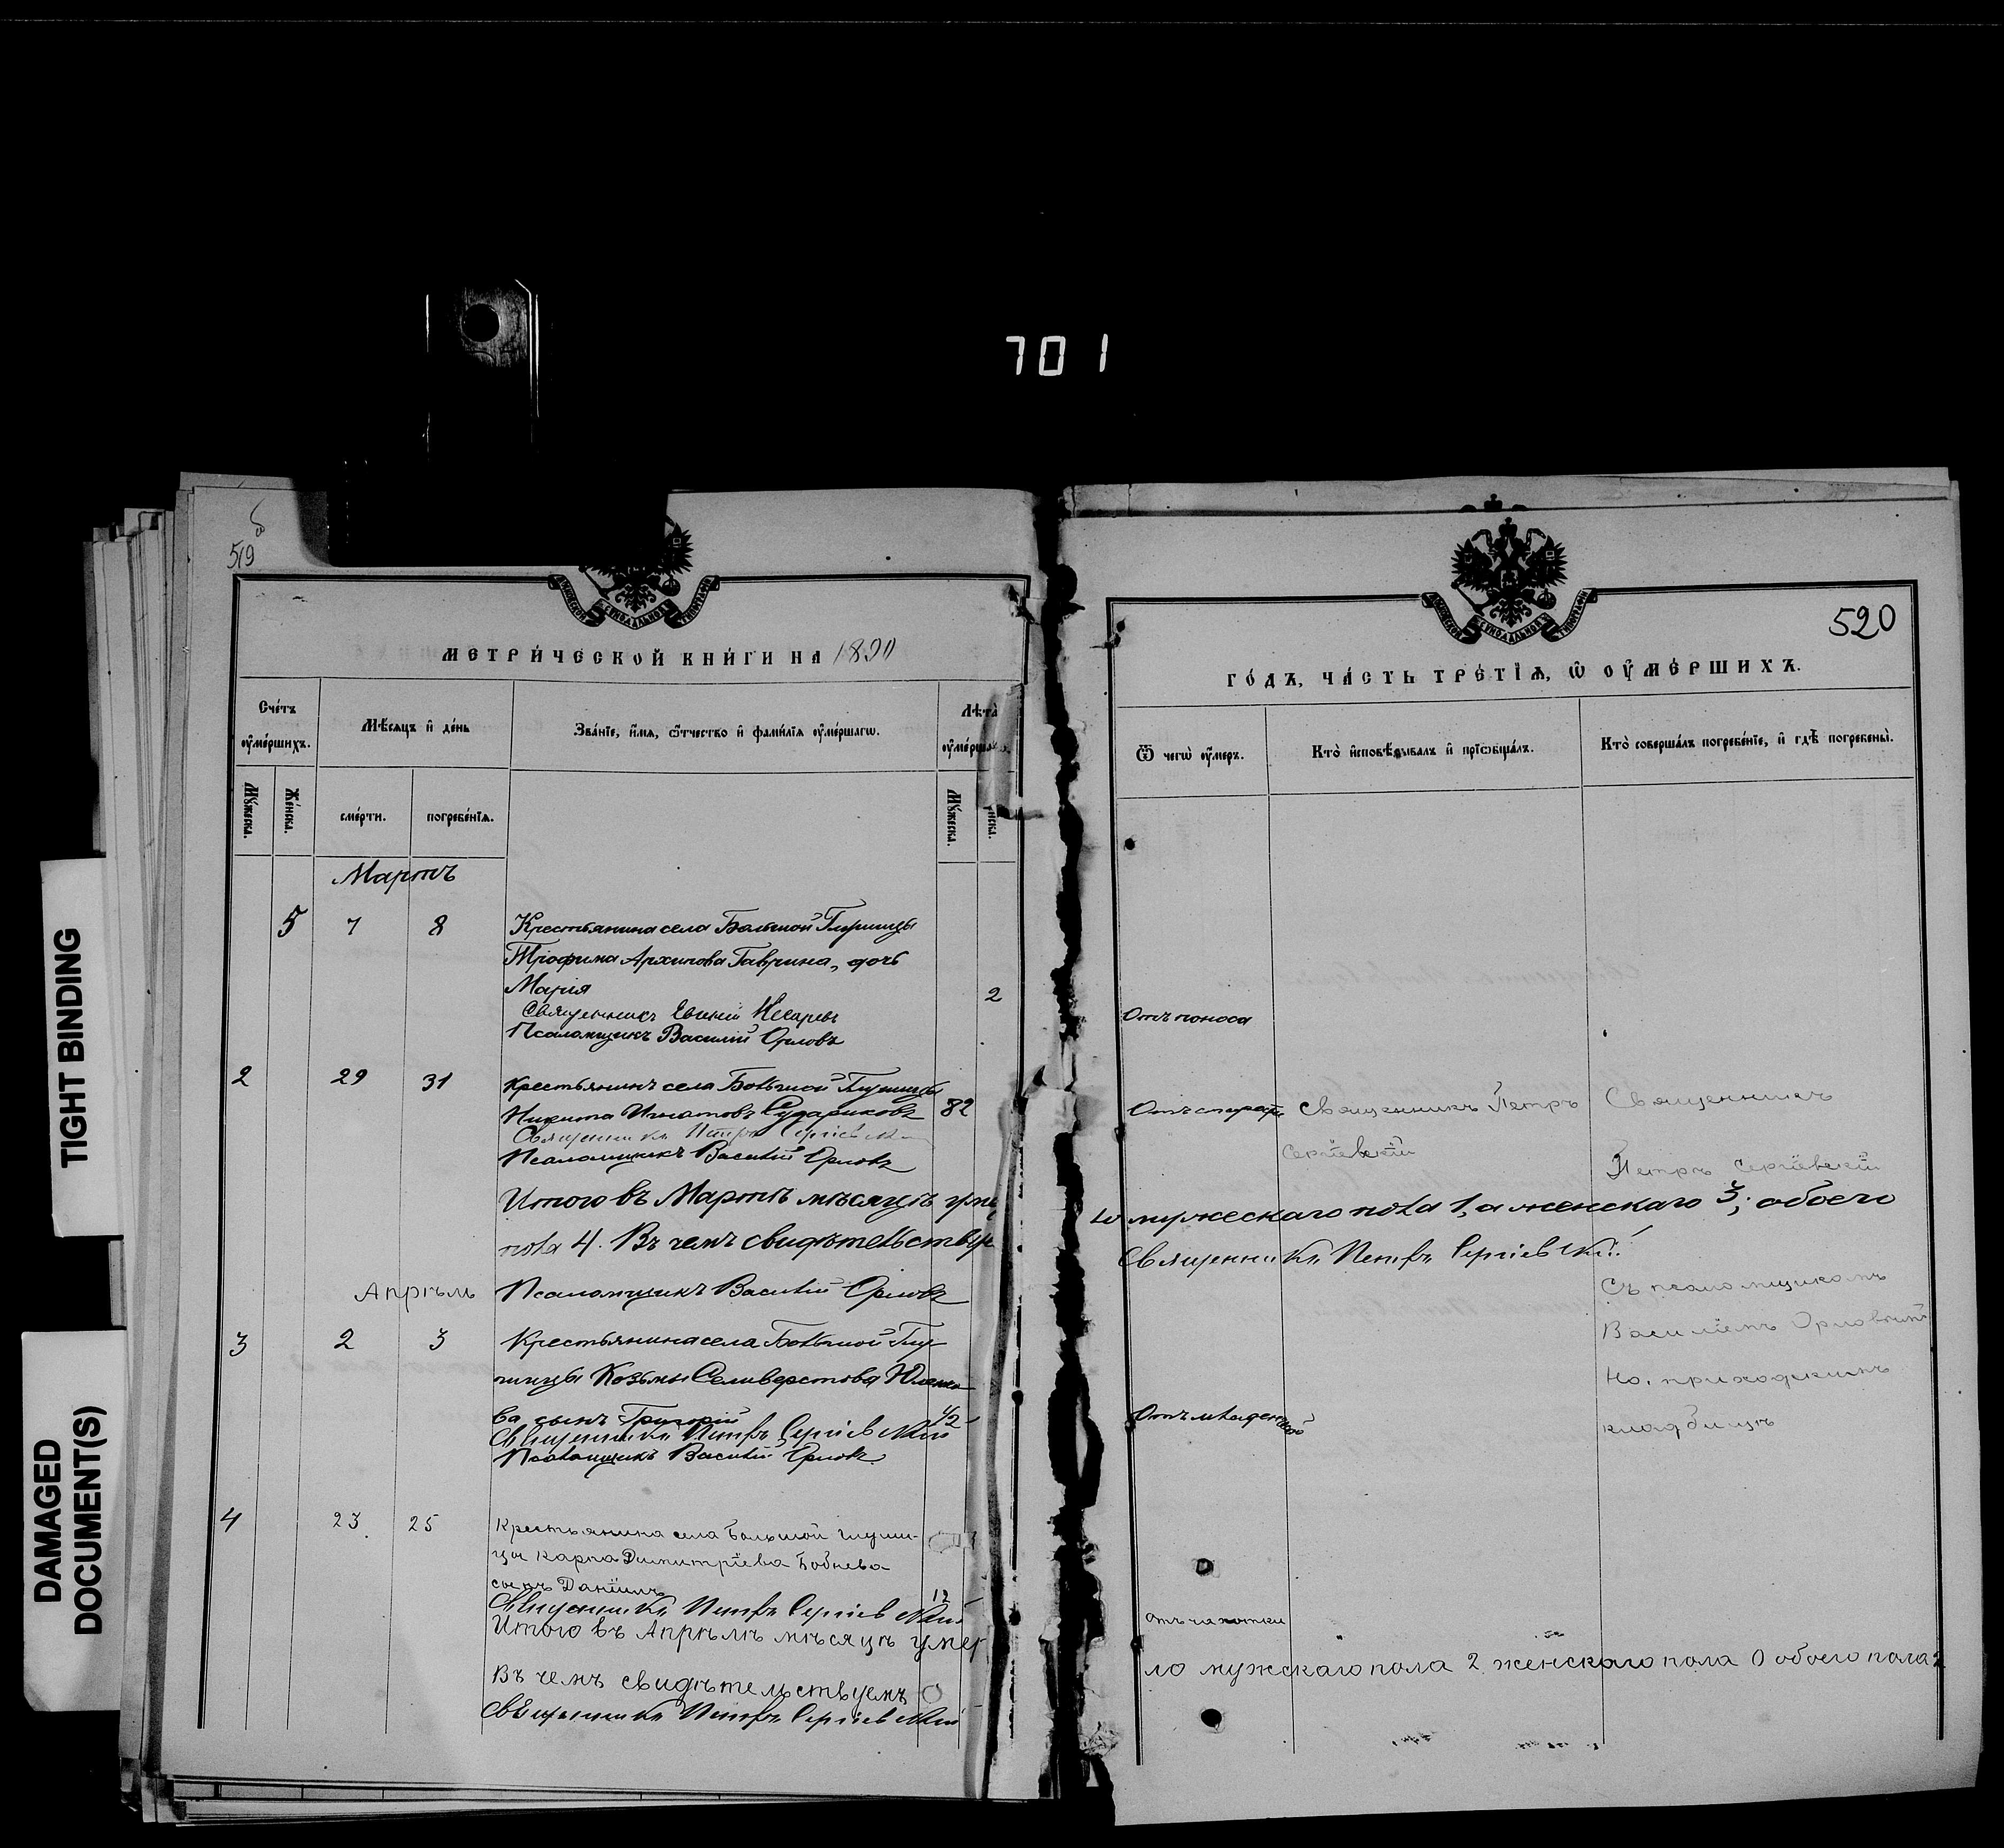 701
519
об
520
TIGHT BINDING
DAMAGED
DOCUMENT(S)
МЕТРИ́ЧЕСКОЙ КНИ́ГИ НА 1890
Сче́тъ
ᲂу҆ме́ршихъ.
Мѣ́сяцъ и҆ де́нь
Зва́нїе, и҆́мѧ, ѻ҆́тчество и҆ фами́лїѧ ᲂу҆ме́ршагѡ.
Лѣта̀
Мꙋ́жеска.
Же́нска.
сме́рти.
погребе́нїѧ.
Мꙋ́жеска.
Мартъ
5 7 8 Крестьянина села Большой
Трофима Архипова Гаврина, дочь
Мария 2
Священникъ Евгений
Псаломщикъ Василий Орловъ
2 29 31 Крестьянинъ села Большой
Никита Игнатовъ Судариковъ 82
Священникъ Петръ Сергіевскій
Псаломщикъ Василій Орловъ
Итого въ Мартѣ мѣсяцѣ уме
пола 4. Въ чемъ свидѣтельствуе
Апрѣль Псаломщикъ Василій Орловъ
3 2 3 Крестьянина села Большой
Козьмы Селиверстова
ва сынъ Григорій 1/2
Священникъ Петръ Сергіевскій
Псаломщикъ Василій Орловъ
4 23 25 Крестьянина села Большой
цы Карпа Димитріева Бобнева
сынъ Даніилъ 12
Священникъ Петръ Сергіевскій
Итого въ Апрѣлѣ мѣсяцѣ умер
Въ чемъ свидѣтельствуемъ
Священникъ Петръ Сергіевскій
ГО́ДЪ, ЧА́СТЬ ТРЕ́ТЇѦ, Ѡ҆ ОУ҆МЕ́РШИХЪ.
Ѿ чегѡ̀ ᲂу҆́меръ.
Кто̀ и҆сповѣ́дывалъ и҆ прїѡбща́лъ.
Кто̀ соверша́лъ погребе́нїе, и҆ гдѣ̀ погребены̀.
Отъ поноса
Отъ старости Священникъ Петръ Священникъ
Сергіевскій Петръ Сергіевскій
ло мужескаго пола 1, а женскаго 3; обоего
Священникъ Петръ Сергіевскій
Съ псаломщикомъ
Василіемъ Орловымъ
На приходскомъ
кладбищѣ
Отъ младенческой
Отъ чахотки
ло мужскаго пола 2 женскаго пола 0 обоего пола 2